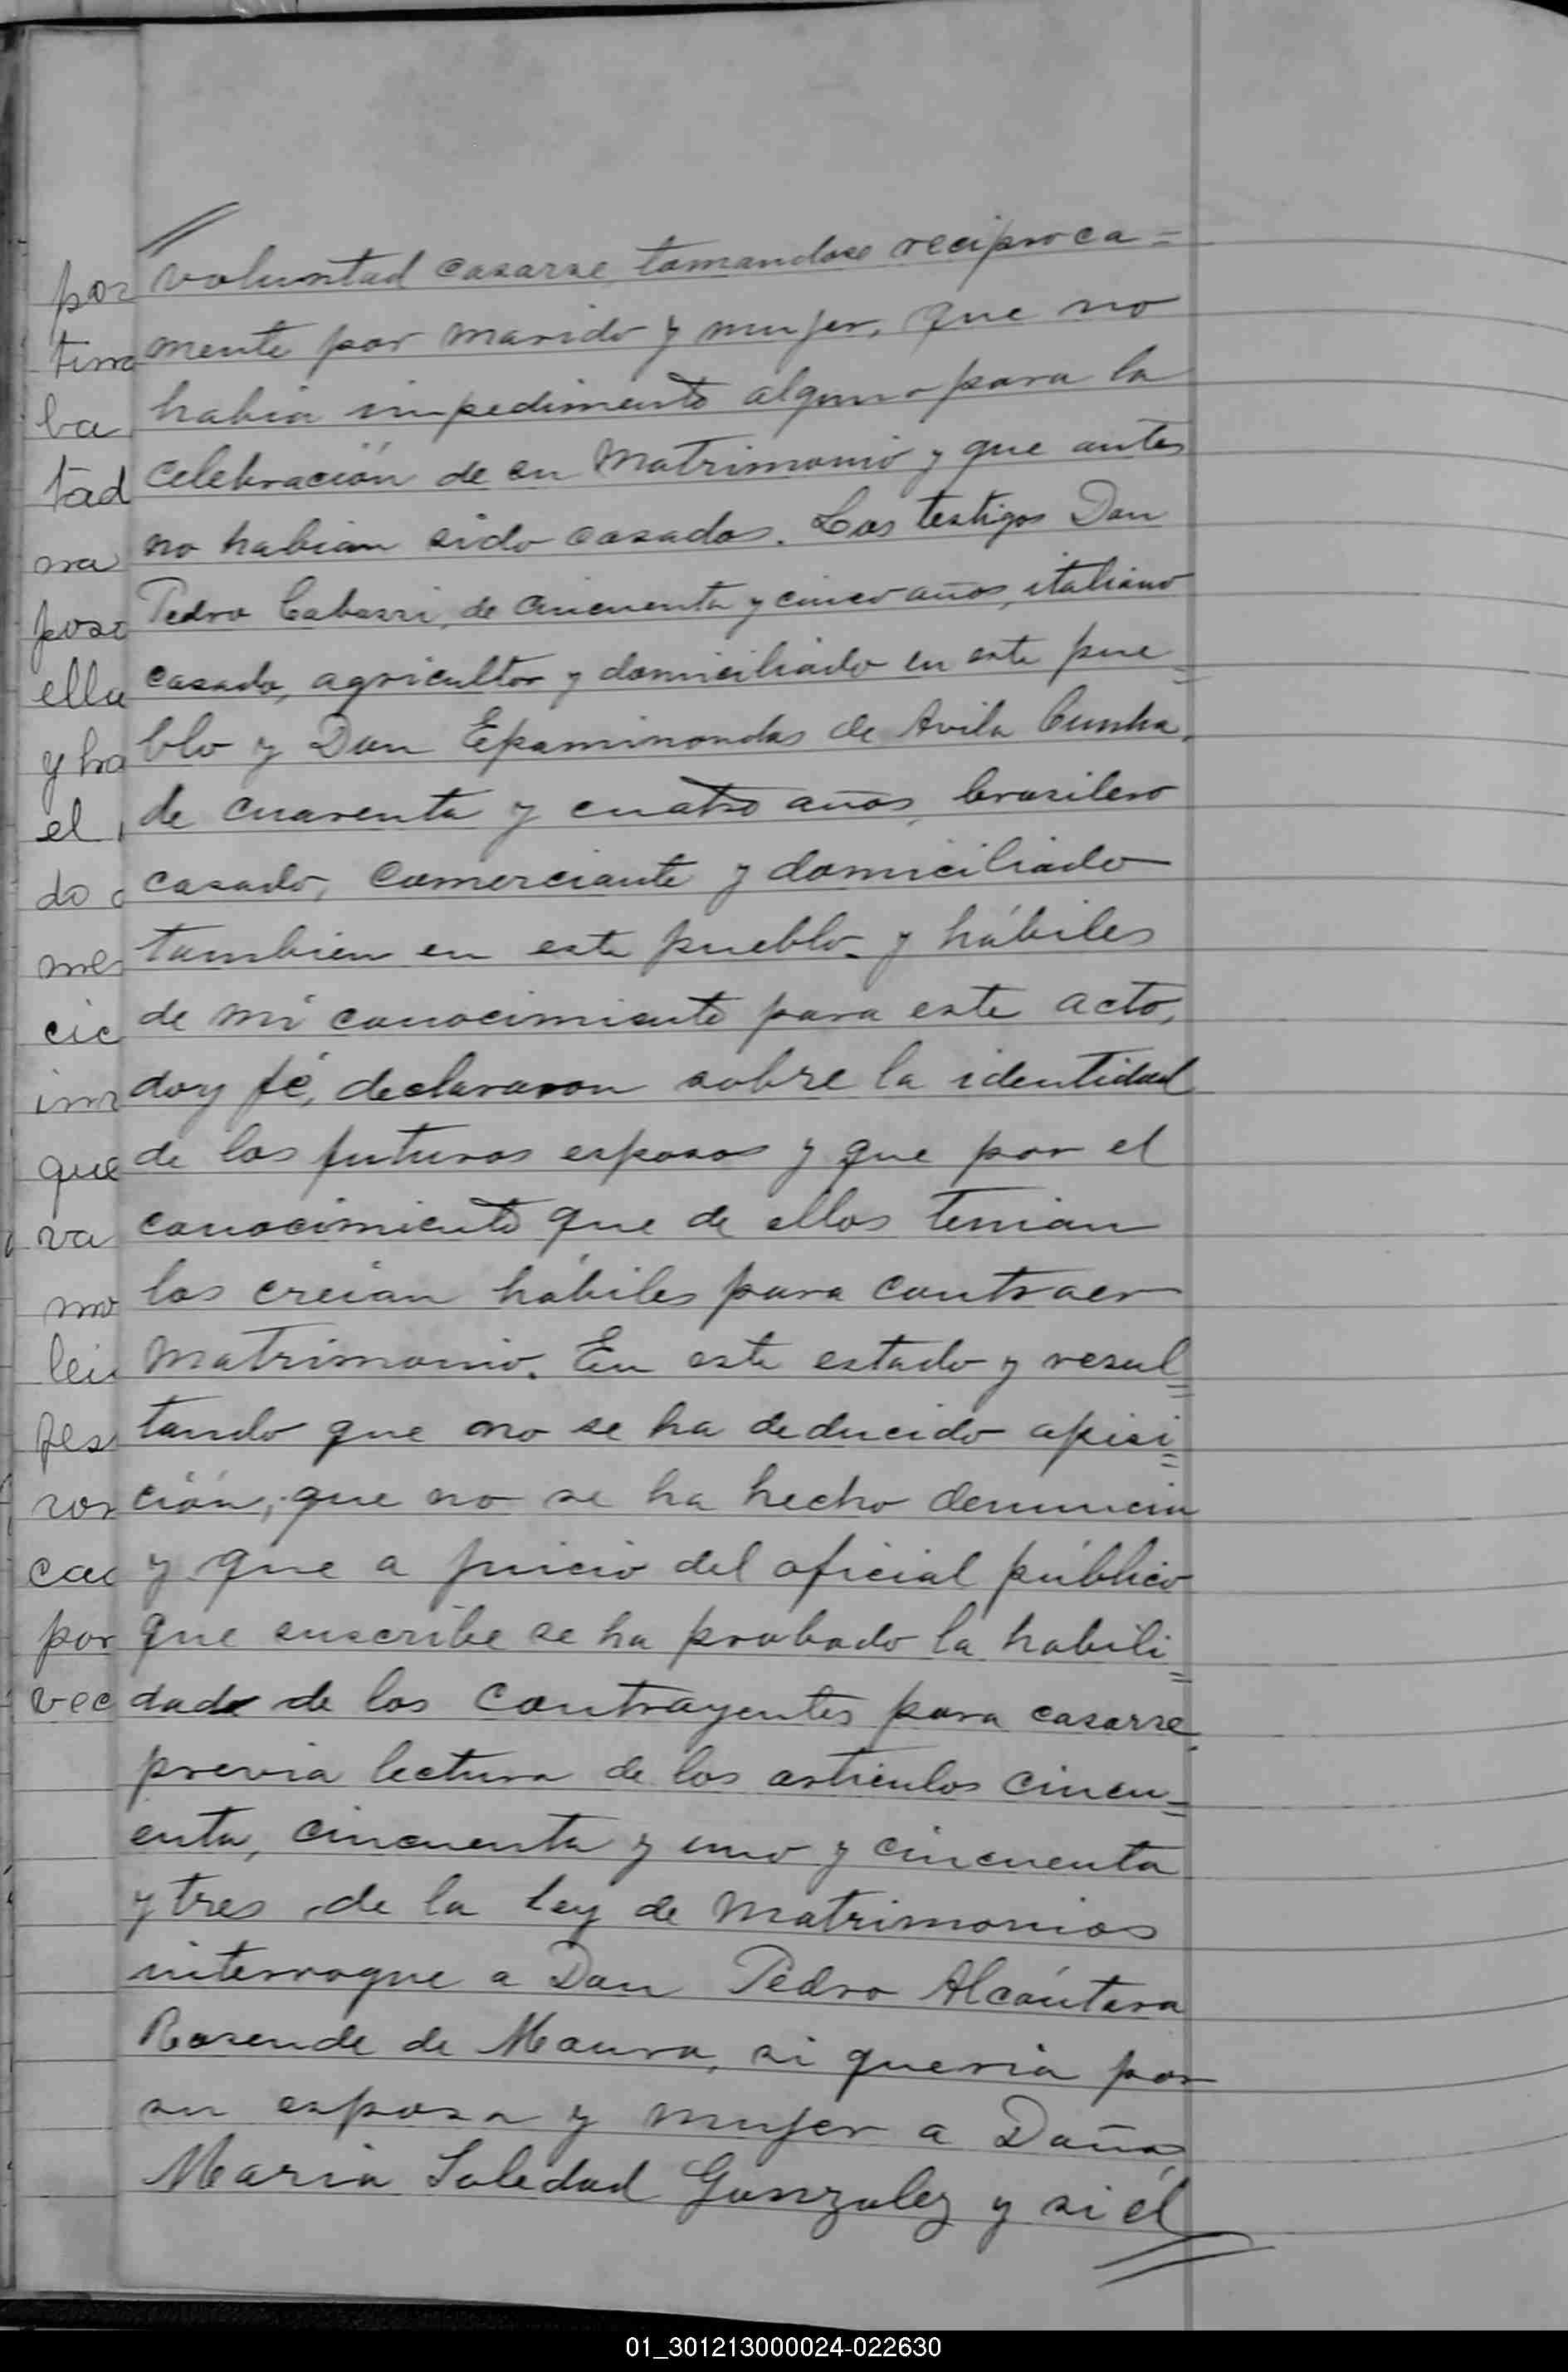 voluntad casarse tomandose reciproca=
mente por marido y mujer, que no
habia impedimento alguno para la
celebración de su Matrimonio y que antes
no habian sido casados. Los testigos Don
Pedro de cincuenta y cinco años, italiano
casado, agricultor y domiciliado en este pue=
blo y Don Epaminondas de Avila Cunha,
de cuarenta y cuatro años, brasilero
casado, comerciante y domiciliado
tambien en este pueblo y hábiles
de mi conocimiento para este acto,
doy fé, declararon sobre la identidad
de los futuros esposos y que por el
conocimiento que de ellos tenian
los creian hábiles para contraer
matrimonio. En este estado y resul=
tando que no se ha deducido opisi=
ción, que no se ha hecho denuncia
y que a juicio del oficial público
que suscribe se ha probado la habili=
dad de los contrayentes para casarse,
previa lectura de los articulos cincu=
enta, cincuenta y uno y cincuenta
y tres de la ley de Matrimonios
interrogue a Don Pedro Alcántara
Rosende de Moura, si queria por
su esposa y mujer a Doña
Maria Soledad Gonzalez y si él
por
ba
tad
ra
poso
ella
y ha
el
do
mes
cic
im
que
va
mo
lei
fes
ron
cac
por
vec
01_301213000024-022630